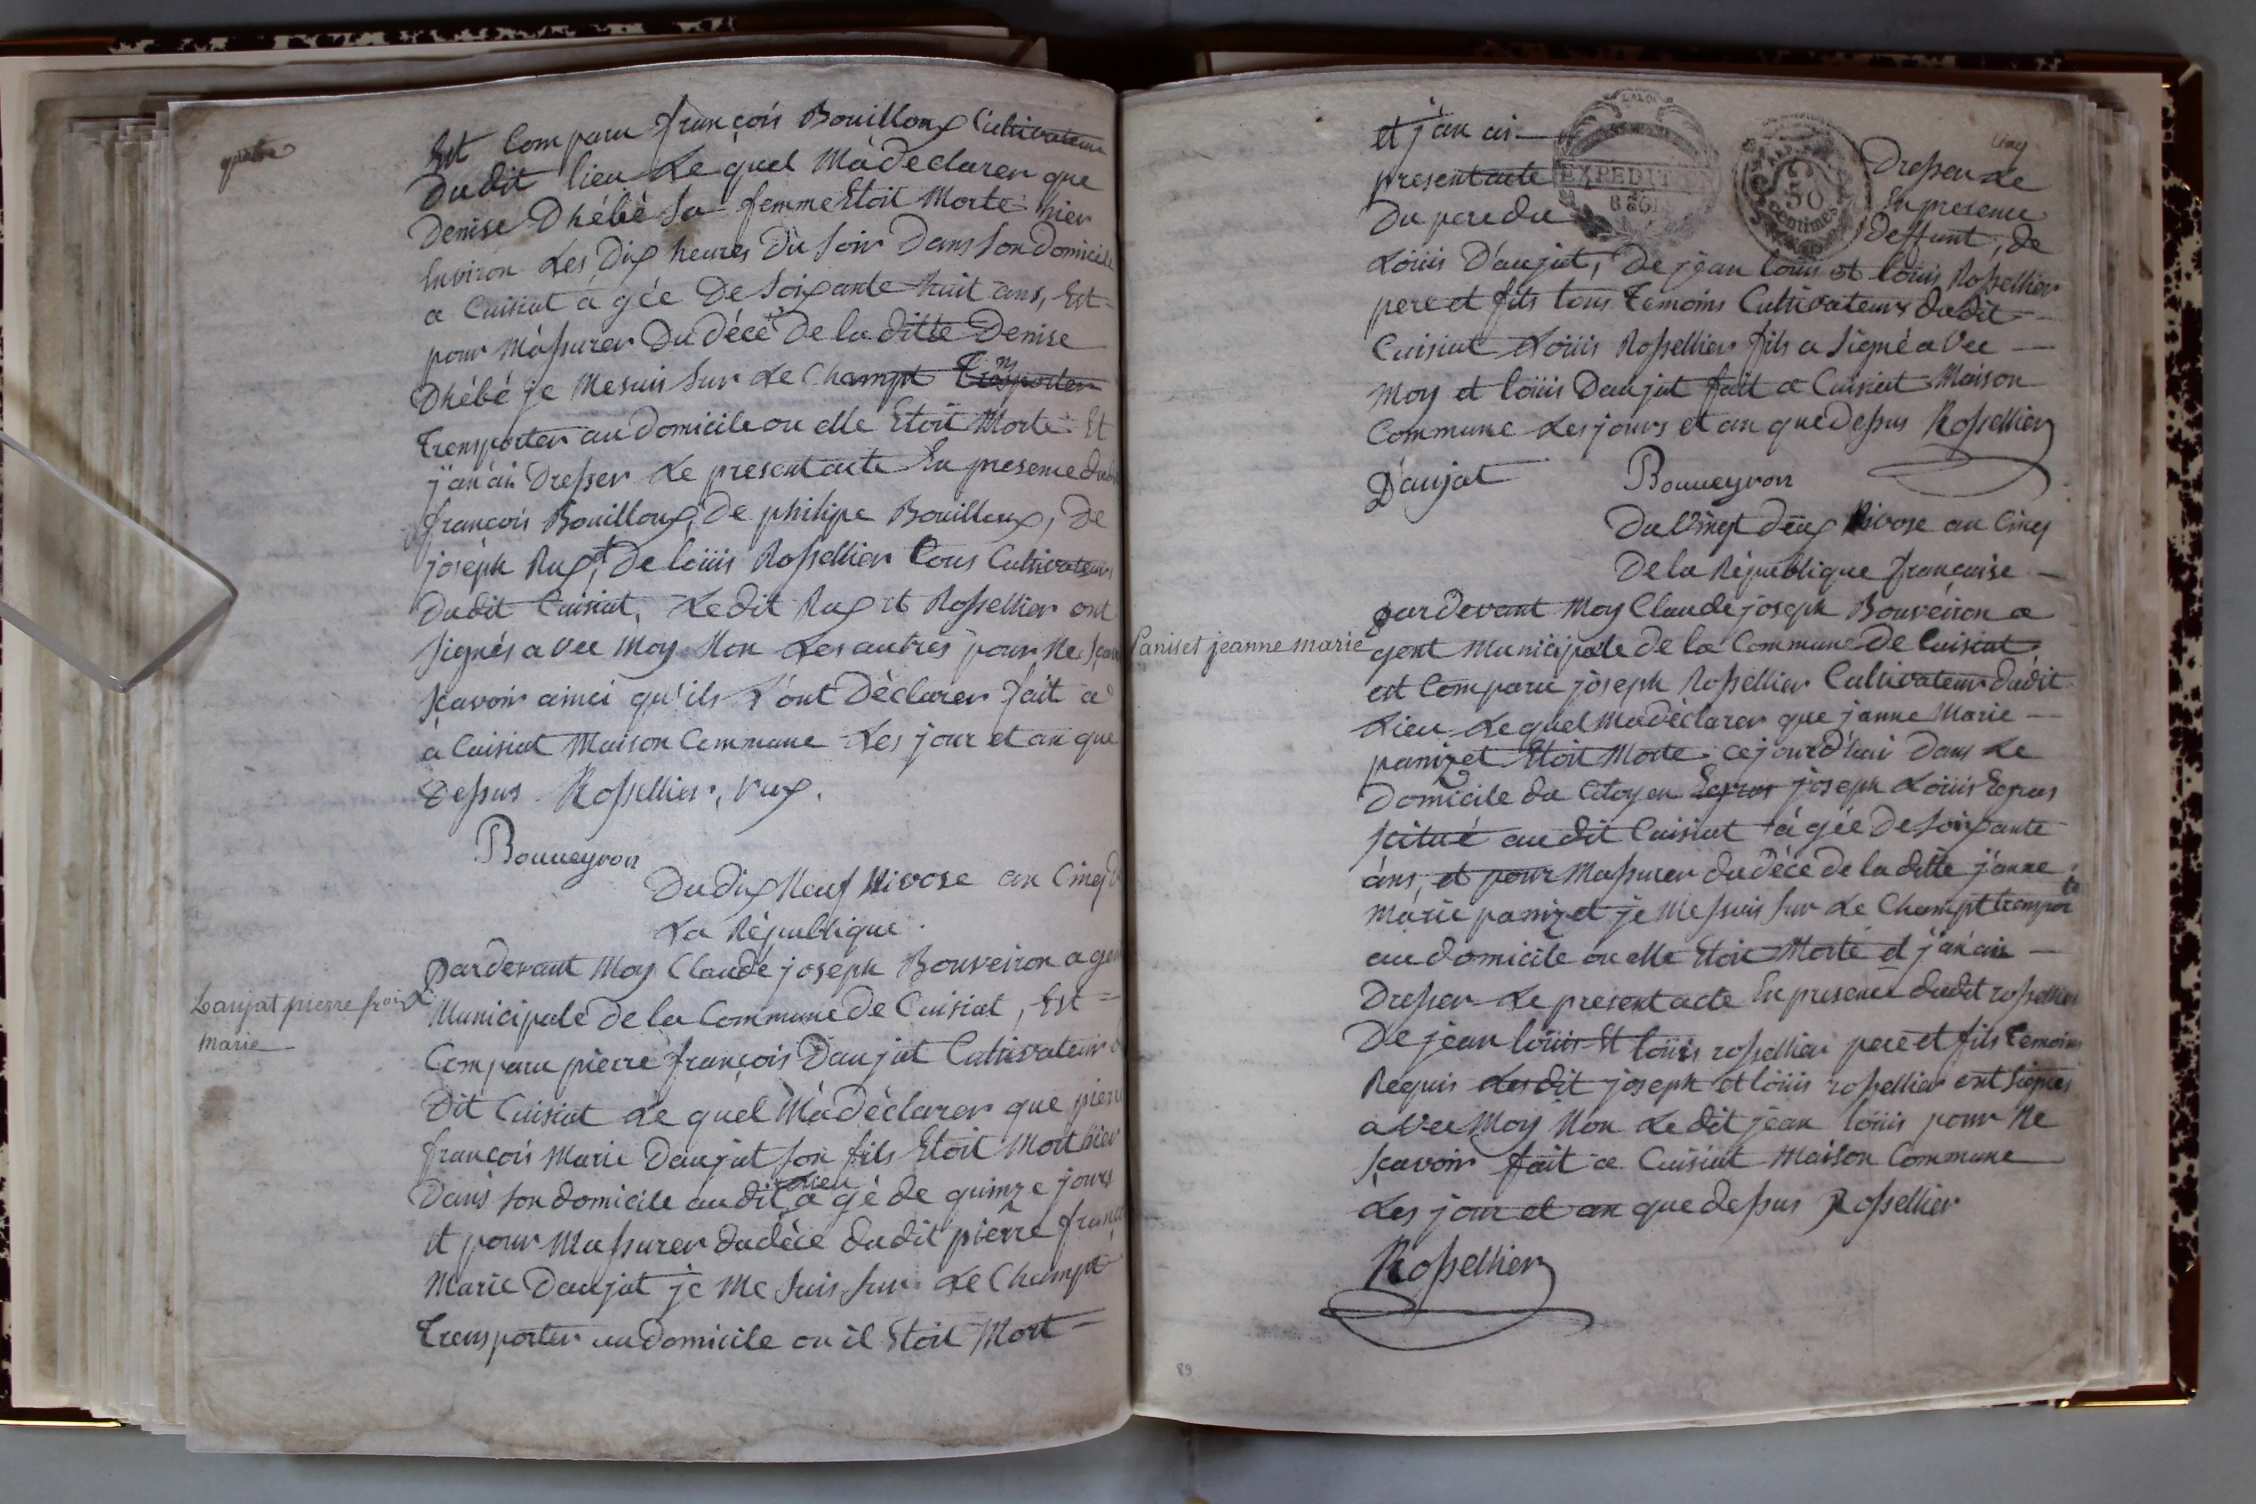 quatre
Est Comparu françois Bouilloux Cultivateur
Dudit lieu Le quel M'à declarer que
Denise Dhébé Sa femme Etoit Morte hier
Environ Les Dix heures Du Soir Dans Son Domicile
a Cuisiat à gée De Soixante huit ans, Est-
pour M'assurer Du décé de la ditte Denise
Dhébé je Me suis Sur Le Champt Transporter
Trensporter au Domicile ou elle Etoit Morte Et
j'an ai Dresser Le present acte En presence dudit
françois Bouilloux, De philipe Bouilloux, De
joseph Rux, et De loüis Rossellier tous Cultivateurs
Dudit Cuisiat, Ledit Rux et Rossellier ont
Signés a vec Moy Non Les autres pour Ne Sçavoir
Scavoir ainci qu'ils l'ont Dèclarer fait a
à Cuisiat Maison Commune Les jour et an que
Dessus Rossellier, Rux.
Bouueyron
Du dix Neuf Nivose an Cinq D
La République.
Laujat pierre frois
Marie
pardevant Moy Claude joseph Bouveiron agen
Municipale de la Commune de Cuisiat, Est=
Comparu pierre françois Daujat Cultivateur d
Dit Cuisiat Le quel M'à dèclarer que pierre
françois Marie Daujat Son fils Etoit Mort hier
Dans Son domicile audit Lieu à gé de quinze jours
et pour M'assurer du déce dudit pierre franç
Marie Daujat je Me Suis Sur Le Champt
Trensporter au Domicile ou il Etoit Mort=
Cinq
et j'an ai Dresser Le
present acte En presence
Du pere du Deffunt, de
EXPEDIT
50
Centimes
Loüis Daujat, De jean loüis et loüis Rossellier
pere et fils tous Temoins Cultivateurs dudit
Cuisiat Loüis Rossellier fils a Signé a vec
Moy et loüis Daujat fait a Cuisiat Maison
Commune Les jours et an que Dessus Rossellier
Daujat Bouueyron
Du Vingt deux Nivose an Cinq
De la République française
Paniset jeanne marie
pardevant Moy Claude joseph Bouvéiron a
gent Municipale de la Commune de Cuisiat
est Comparu joseph Rossellier Cultivateur dudit
Lieu Le quel M'a dèclarer que janne Marie
panizet Etoit Morte ce jourd'hui Dans Le
Domicile du Citoyen joseph Loüis
scitué au dit Cuisiat à gée de Soixante
ans, et pour M'assurer du déce de la ditte janne
Marie panizet je Me suis Sur Le Champt trenspor
te
au domicile ou elle Etoit Morte et j'an ai
Dresser Le present acte En presence dudit rossellier
De jean loüis Et loüis rossellier pere et fils temoins
Requis Lesdit joseph et loüis rossellier ont Signés
a vec Moy Non Le dit jean loüis pour Ne
Scavoir fait a Cuisiat Maison Commune
Les jour et an que dessus Rossellier
Rossellier
89